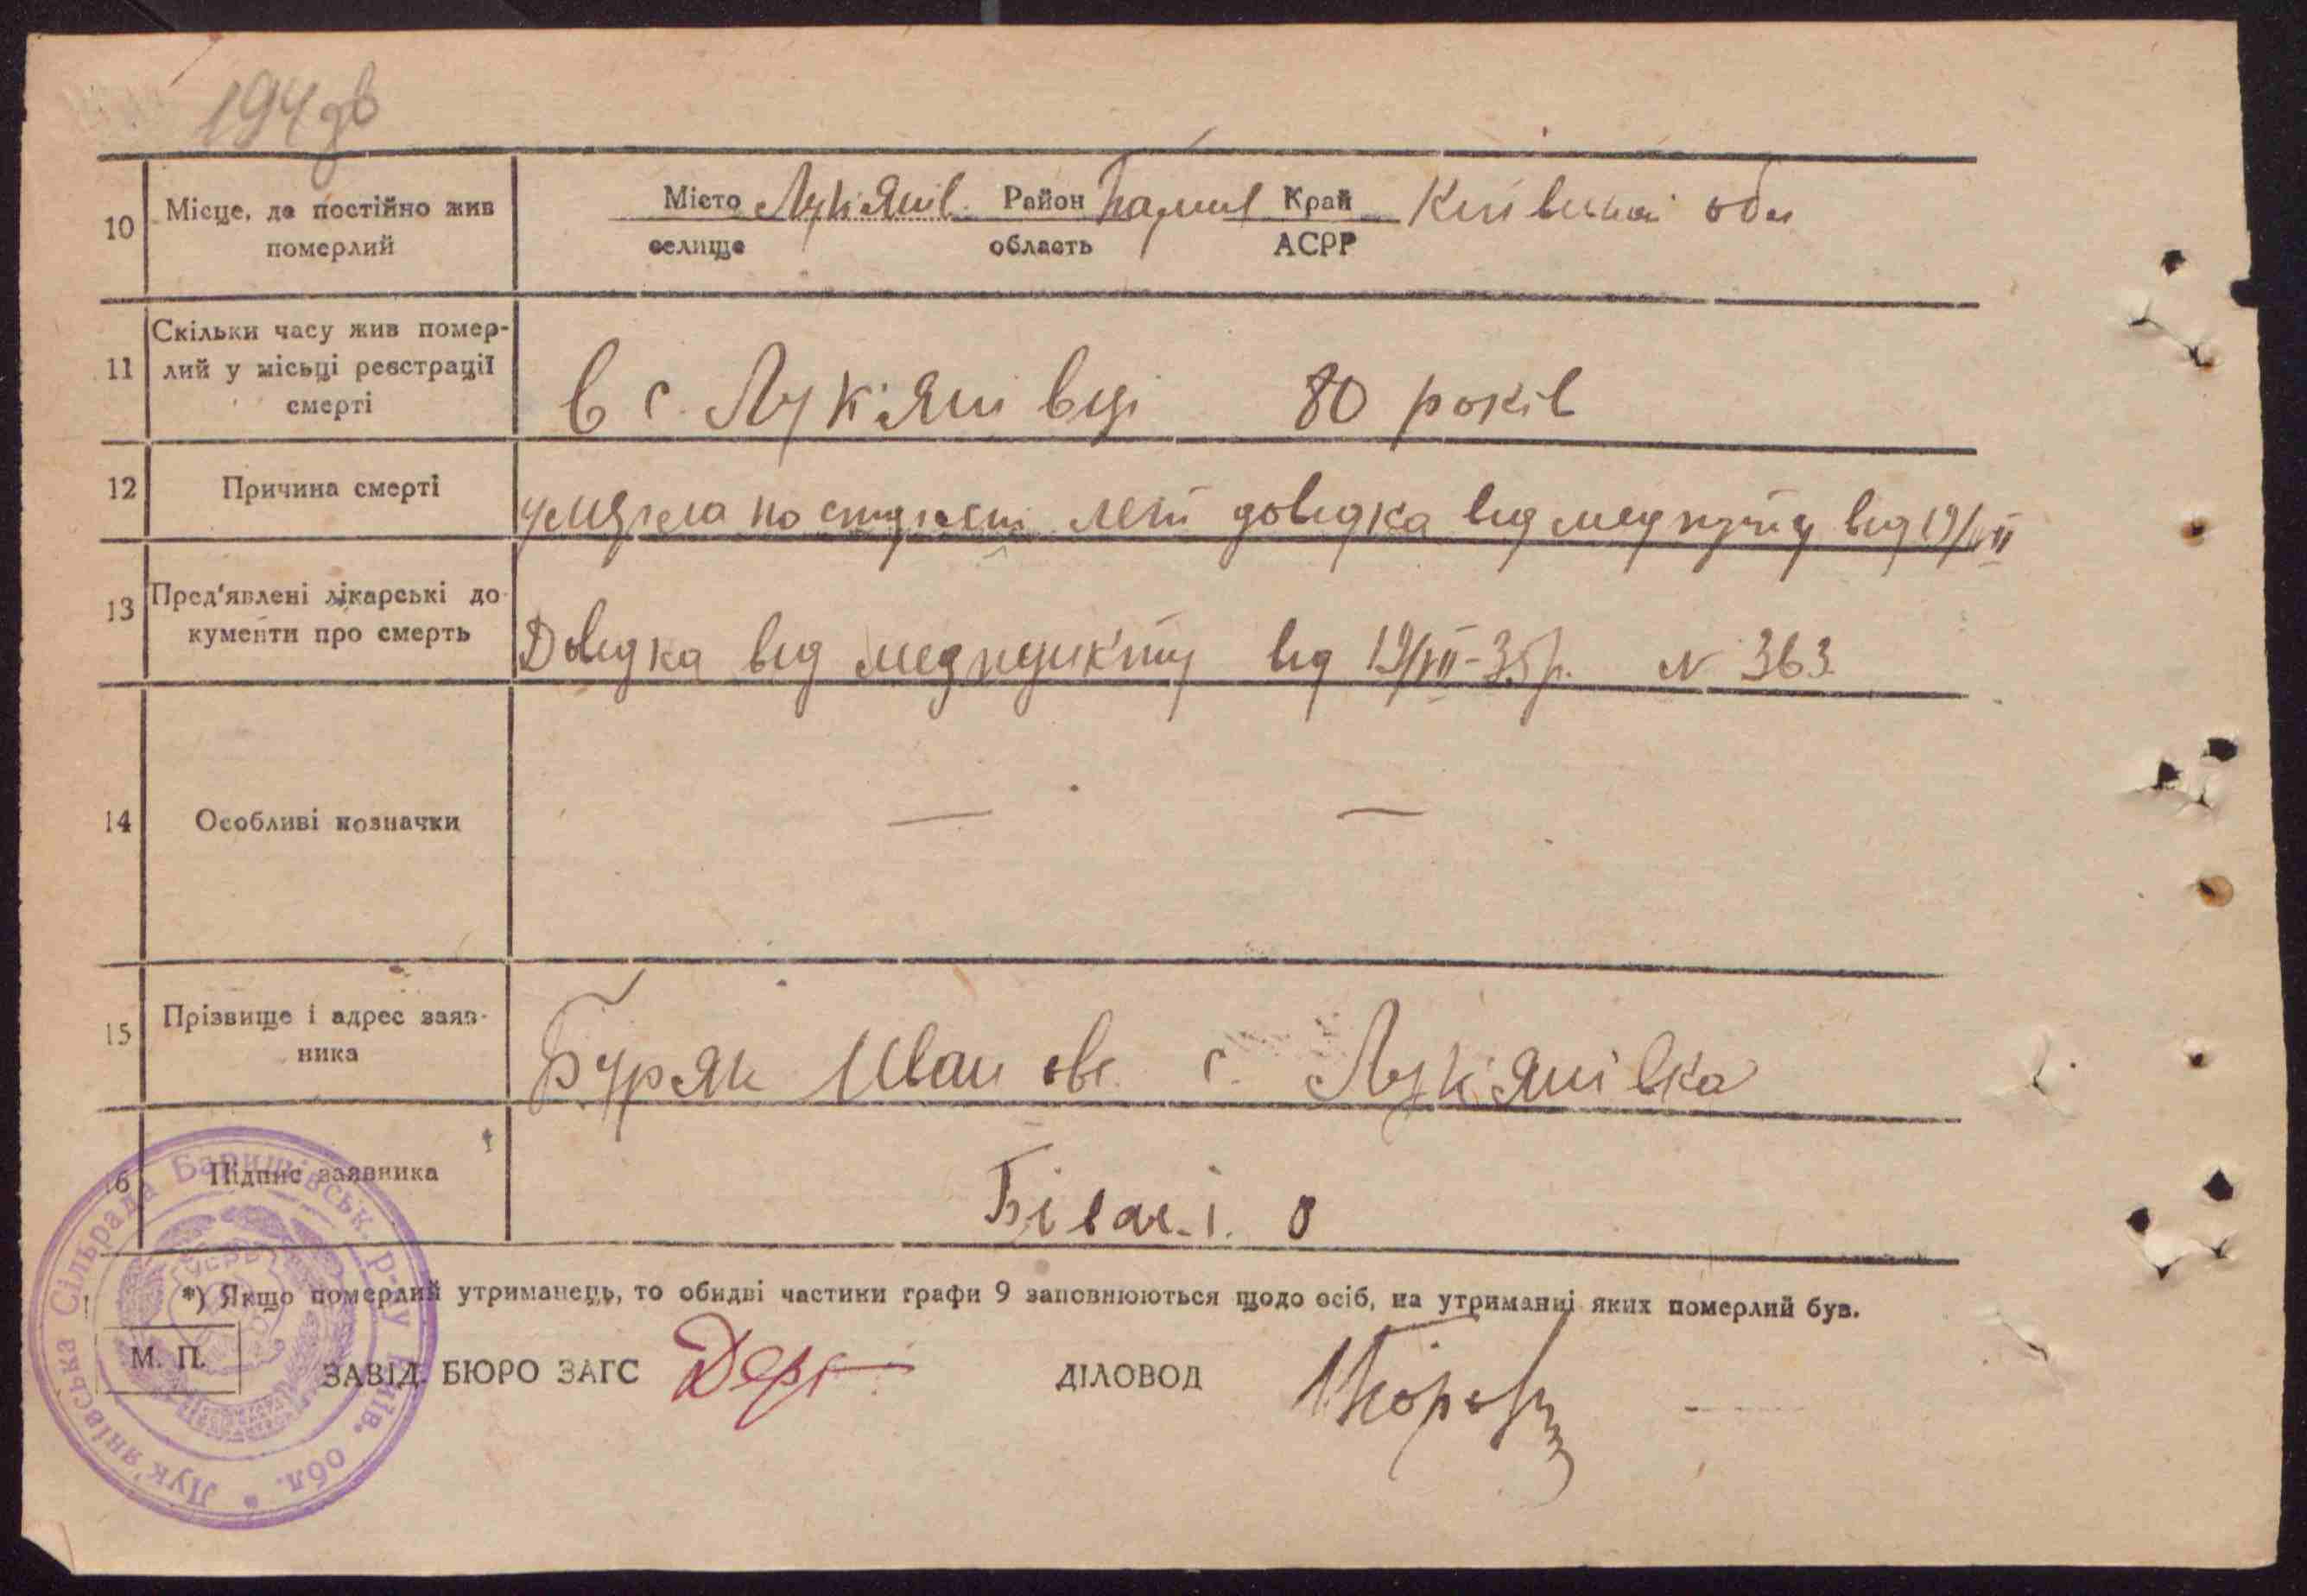 194 зв
10
Місце, де постійно жив
померлий
Місто Лук'янів. Район Бариш Край Київської обл
селище область АСРР
11
Скільки часу жив помер-
лий у місьці реєстрації
смерті
в с. Лук'янівці 80 років
12
Причина смерті
умерла по старости лет довідка від медпункту від 19/VII
13
Пред'явлені лікарські до-
кументи про смерть
Довідка від медпункту від 19/VII-35р. N 363
14
Особливі нозначки
— —
15
Прізвище і адрес заяв-
ника
Буряк Иван с. Лук'янівка
16
Підпис заявника
*) Якщо померлий утриманець, то обидві частини графи 9 заповнюються щодо осіб, на утриманні яких померлий був.
М. П.
ЗАВІД. БЮРО ЗАГС ДІЛОВОД
Лук'янівська Сільрада Баришівськ. р-ну Київ. обл.
УСРР